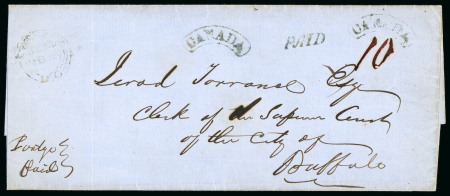 CANADA
PAID
CANADA
10
Torrance Esq
Clerk of the Court
of the City of
Buffalo
Paid